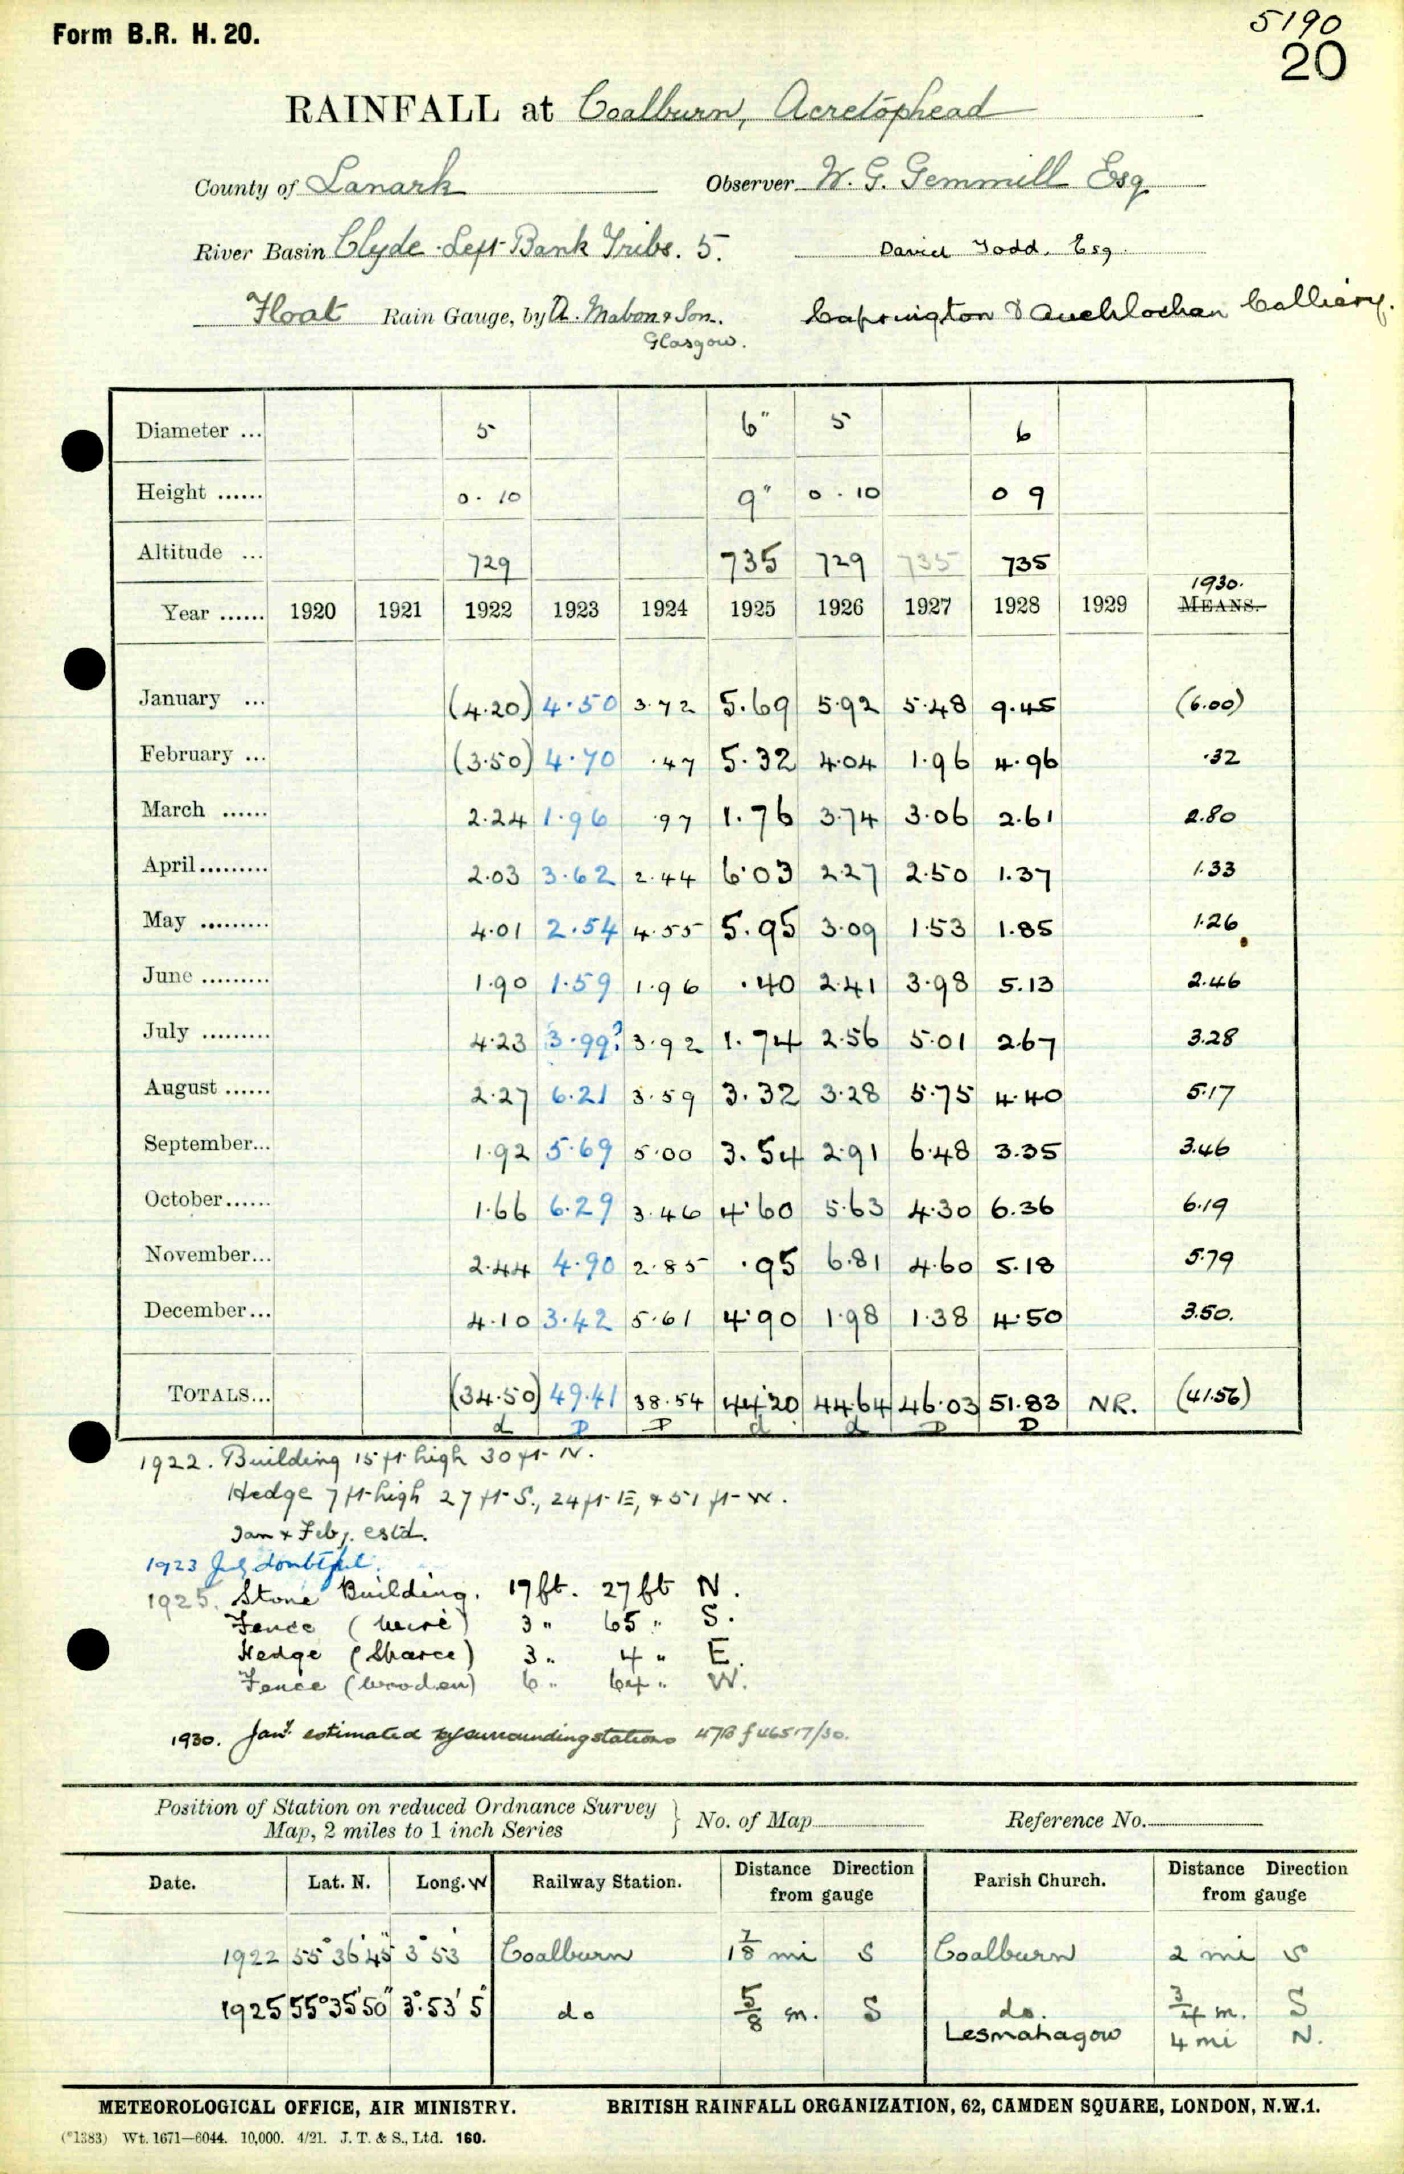 Form B.R. H. 20.
5190
20
RAINFALL at Coalburn, Acretophead
County of Lanark Observer W. G. Gemmill Esq
River Basin Clyde Left Bank Tribs. 5. David Todd, Esq.
Float Rain Gauge, by A. Mabon & Son. Caprington & Auchlochan Colliery.
Glasgow.
Diameter ... 5 6" 5 6
Height ...... 0.10 9" 0.10 0 9
Altitude ... 729 735 729 735 735
1930.
Year ...... 1920 1921 1922 1923 1924 1925 1926 1927 1928 1929 MEANS.
January ... (4.20) 4.50 3.72 5.69 5.92 5.48 9.45 (6.00)
February ... (3.50) 4.70 .47 5.32 4.04 1.96 4.96 .32
March ...... 2.24 1.96 .97 1.76 3.74 3.06 2.61 2.80
April......... 2.03 3.62 2.44 6.03 2.27 2.50 1.37 1.33
May ......... 4.01 2.54 4.55 5.95 3.09 1.53 1.85 1.26
June ......... 1.90 1.59 1.96 .40 2.41 3.98 5.13 2.46
July ......... 4.23 3.99? 3.92 1.74 2.56 5.01 2.67 3.28
August ...... 2.27 6.21 3.59 3.32 3.28 5.75 4.40 5.17
September... 1.92 5.69 5.00 3.54 2.91 6.48 3.35 3.46
October...... 1.66 6.29 3.46 4.60 5.63 4.30 6.36 6.19
November... 2.44 4.90 2.85 .95 6.81 4.60 5.18 5.79
December... 4.10 3.42 5.61 4.90 1.98 1.38 4.50 3.50.
TOTALS... (34.50) 49.41 38.54 44.20 44.64 46.03 51.83 NR. (41.56)
d D D d d D D
1922. Building 15 ft high 30 ft N.
Hedge 7 ft high 27 ft S., 24 ft E, & 51 ft W.
Jan & Feby. estd.
1923 July doubtful.
1925. Stone Building. 17 ft. 27 ft N.
Fence (wire) 3 " 65 " S.
Hedge (Sparce) 3 " 4 " E.
Fence (wooden) 6 " 64 " W.
1930. Jany. estimated by surrounding stations 47B f 46517/30.
Position of Station on reduced Ordnance Survey } No. of Map Reference No.
Map, 2 miles to 1 inch Series
Date. Lat. N. Long. W Railway Station. Distance Direction Parish Church. Distance Direction
from gauge from gauge
1922 55° 36' 45" 3° 53' Coalburn 1 7/8 mi S Coalburn 2 mi S
1925 55° 35' 50" 3° 53' 5" do 5/8 m. S do. 3/4 m. S
Lesmahagow 4 mi N.
METEOROLOGICAL OFFICE, AIR MINISTRY. BRITISH RAINFALL ORGANIZATION, 62, CAMDEN SQUARE, LONDON, N.W.1.
(*1383) Wt. 1671—6044. 10,000. 4/21. J. T. & S., Ltd. 160.